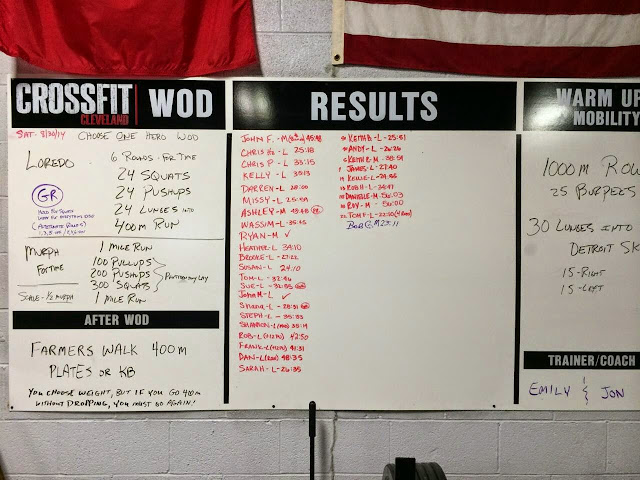 CROSSFIT
CLEVELAND
WOD
SAT- 8/30/14 CHOOSE ONE HERO WOD
LOREDO
6 ROUNDS FOR TIME
24 SQUATS
24 PUSHUPS
24 LUNGES INTO
400M RUN
GR
MURPH
FOR TIME
1 MILE RUN
100 PULLUPS
200 PUSHUPS
300 SQUATS
PARTITION ANY WAY
SCALE-1/2 MURPH
1 MILE RUN
AFTER WOD
FARMERS WALK 400M
PLATES OR KB
YOU CHOOSE WEIGHT, BUT IF YOU GO 400M
WITHOUT DROPPING, YOU MUST GO AGAIN!
RESULTS
JOHN F.
CHRIS H2-L 25:18
CHRIS P-L 33:15
KELLY-L 35:13
DARREN-L 28:00
MISSY-L
ASHLEY-M
WASSIM-L
RYAN-M ✓
HEATHER-L 34:10
BROOKE-L
SUSAN-L 24:10
TOM-L 32:46
SUE-L 32:55
JOHN M-L ✓
SHANA-L 28:31
STEPH-L 35:33
SHARON-L
ROB-L 42:50
FRANK-L 41:31
DAN-L 48:35
SARAH-L-26:35
KEITH B-L-25:51
ANDY-L
KEITH B-M
JAMES-L-27:40
KELLIE-L
ROB H-L
DANIELLE-M
ROY-M
TONY-L
BOB G.
WARM UP
MOBILITY
1000M ROW
25 BURPEES
30 LUNGES INTO
DETROIT SK
15-RIGHT
15-LEFT
TRAINER/COACH
EMILY & JON